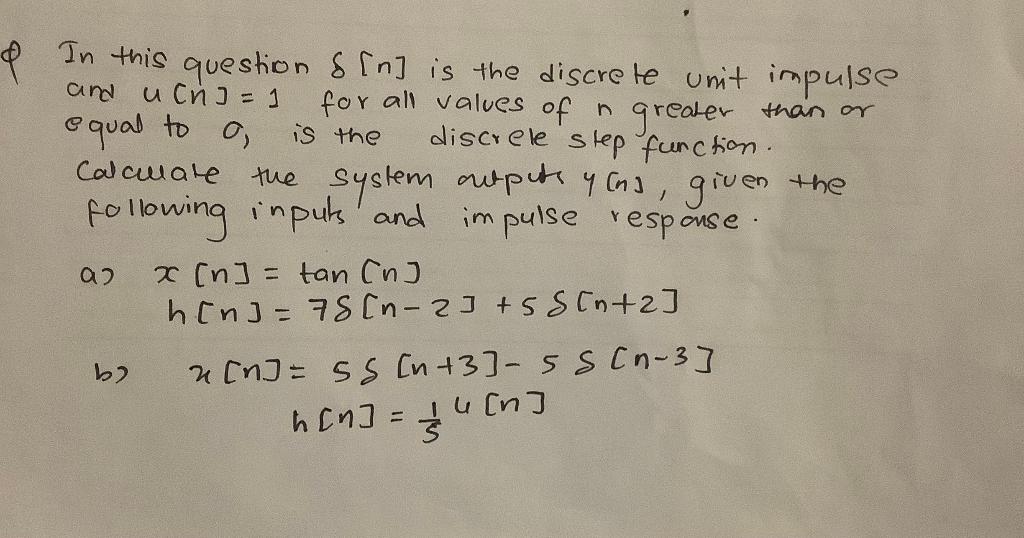 Q In this question δ[n] is the discrete unit impulse
and u[n] = 1 for all values of n greater than or
equal to 0, is the discrete step function.
Calculate the system outputs y[n], given the
following inputs and impulse response.
a) x[n] = tan[n]
h[n] = 7δ[n-2] + 5δ[n+2]
b) x[n] = 5δ[n+3] - 5δ[n-3]
h[n] = 1/5 u[n]